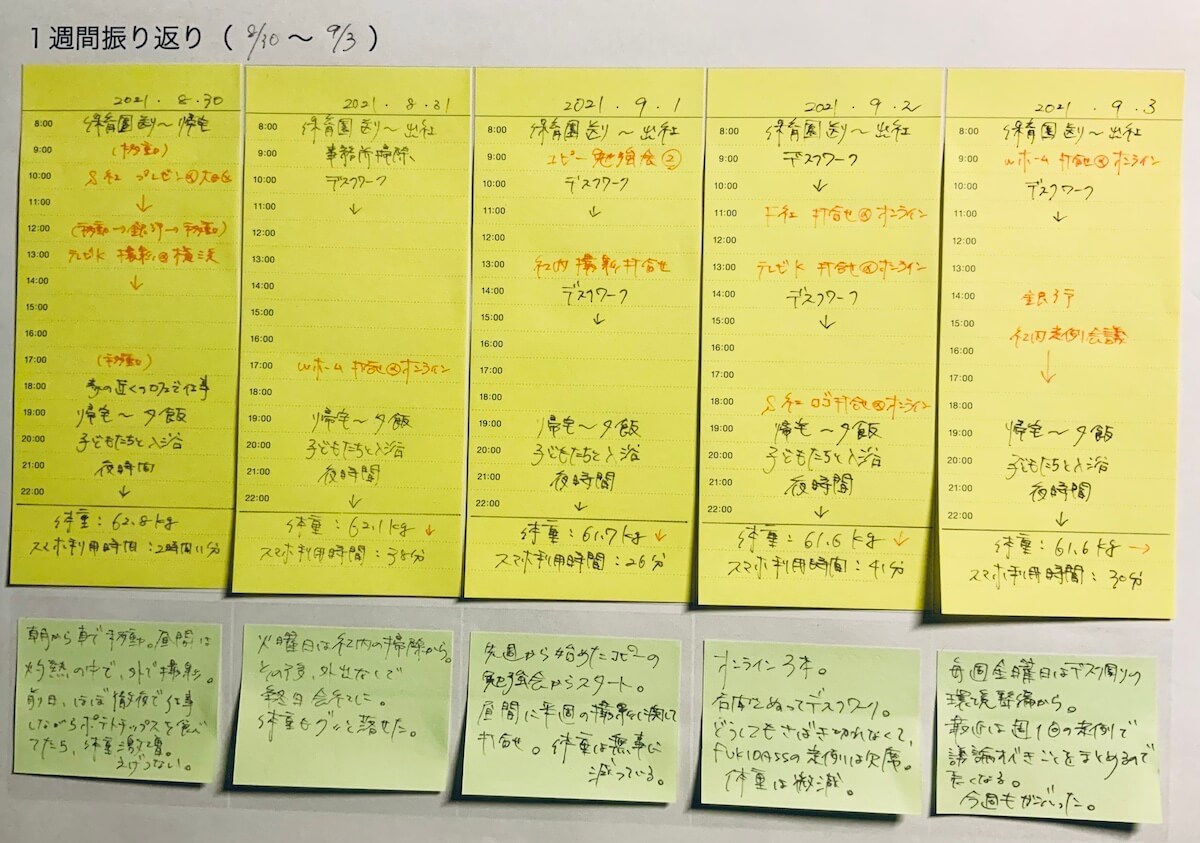 1週間振り返り（ 8/30 〜 9/3 ）
2021. 8.30
8:00 保育園送り〜帰宅
9:00 (移動)
10:00 S社 プレゼン@
11:00 ↓
12:00 (移動→銀行→移動)
13:00 テレビK 撮影@横浜
14:00 ↓
15:00
16:00
17:00 (移動)
18:00 家の近くのカフェで仕事
19:00 帰宅〜夕飯
20:00 子どもたちと入浴
21:00 夜時間
22:00 ↓
体重：62.8kg
スマホ利用時間：2時間11分
2021. 8.31
8:00 保育園送り〜出社
9:00 事務所掃除、
10:00 デスクワーク
11:00 ↓
12:00
13:00
14:00
15:00
16:00
17:00 Wホーム 打合せ@オンライン
18:00
19:00 帰宅〜夕飯
20:00 子どもたちと入浴
21:00 夜時間
22:00 ↓
体重：62.1kg ↓
スマホ利用時間：38分
2021. 9.1
8:00 保育園送り〜出社
9:00 コピー勉強会②
10:00 デスクワーク
11:00 ↓
12:00
13:00 社内 撮影打合せ
14:00 デスクワーク
15:00 ↓
16:00
17:00
18:00
19:00 帰宅〜夕飯
20:00 子どもたちと入浴
21:00 夜時間
22:00 ↓
体重：61.7kg ↓
スマホ利用時間：26分
2021. 9.2
8:00 保育園送り〜出社
9:00 デスクワーク
10:00 ↓
11:00 F社 打合せ@オンライン
12:00
13:00 テレビK 打合せ@オンライン
14:00 デスクワーク
15:00 ↓
16:00
17:00
18:00 S社 ロゴ打合せ@オンライン
19:00 帰宅〜夕飯
20:00 子どもたちと入浴
21:00 夜時間
22:00 ↓
体重：61.6kg ↓
スマホ利用時間：41分
2021. 9.3
8:00 保育園送り〜出社
9:00 Wホーム 打合せ@オンライン
10:00 デスクワーク
11:00 ↓
12:00
13:00
14:00 銀行
15:00
16:00 社内定例会議
17:00 ↓
18:00
19:00 帰宅〜夕飯
20:00 子どもたちと入浴
21:00 夜時間
22:00 ↓
体重：61.6kg →
スマホ利用時間：30分
朝から車で移動。昼間は
灼熱の中で、外で撮影。
前日、ほぼ徹夜で仕事
しながらポテトチップスを食べ
てたら、体重激増。
えげつない。
火曜日は社内の掃除から。
その後、外出なしで
終日会社に。
体重もグッと落せた。
先週から始めたコピーの
勉強会からスタート。
昼間に来週の撮影に関して
打合せ。体重は無事に
減っている。
オンライン3本。
合間をぬってデスクワーク。
どうしてもさばき切れなくて、
FUKIDASSの定例は欠席。
体重は微減。
毎週金曜日はデスク周りの
環境整備から。
最近は週1回の定例で
議論すべきことをまとめるので
長くなる。
今週もがんばった。